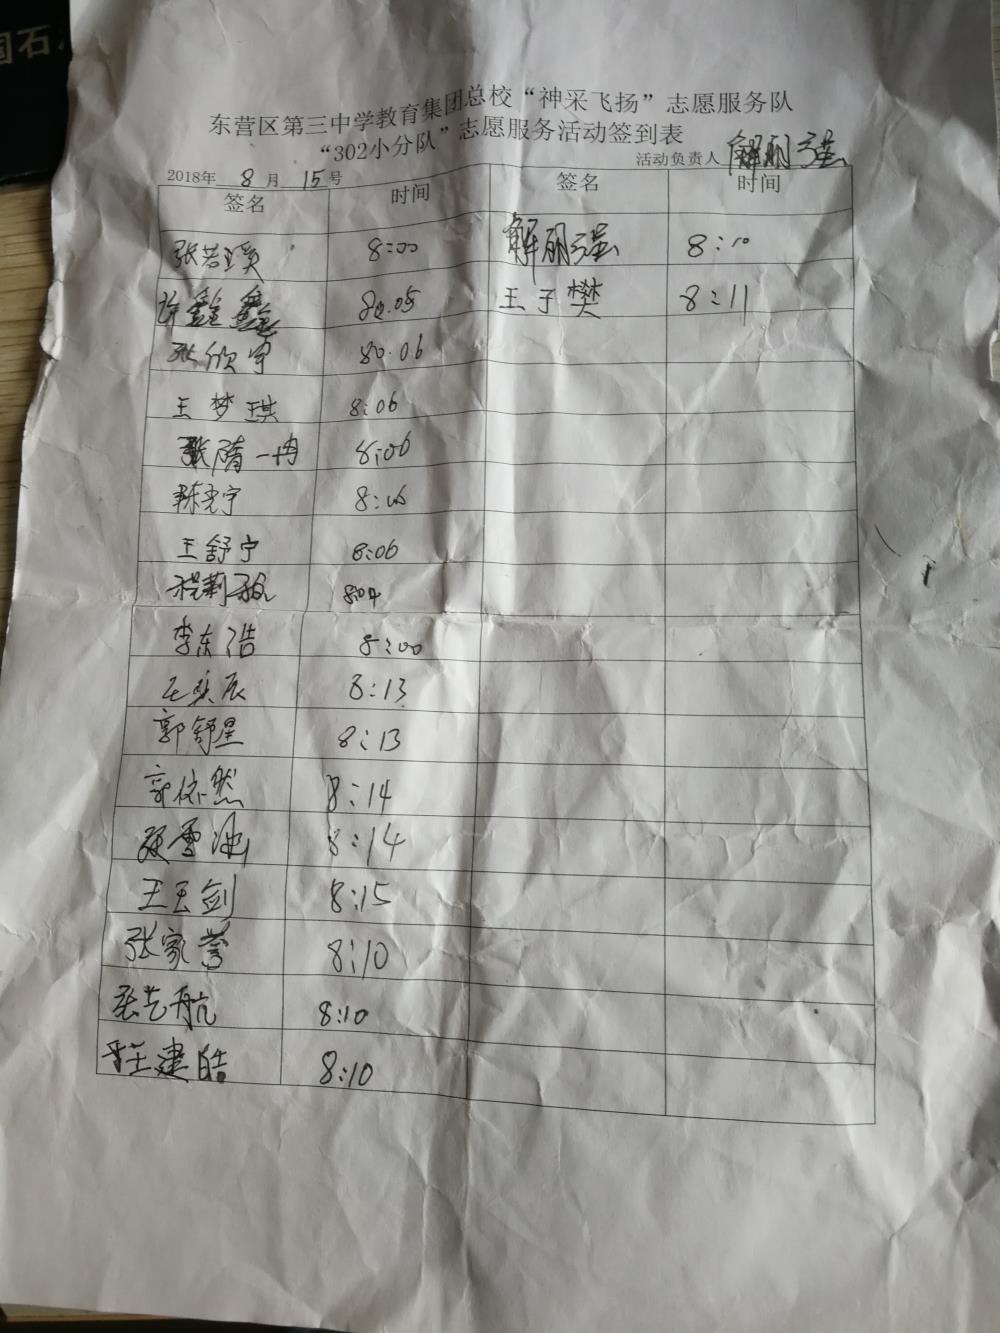 国石
东营区第三中学教育集团总校“神采飞扬”志愿服务队
“302小分队”志愿服务活动签到表
2018年 8 月 15 号 活动负责人 解丽强
签名 时间 签名 时间
张若瑛 8:00 解丽强 8:10
许鑫鑫 8:05 王子樊 8:11
张欣宇 80.06
王梦琪 8:06
张隋一冉 8:06
陈光宇 8:06
王舒宁 8:06
程莉 8:04
李东浩 8:00
王奕辰 8:13
郭舒星 8:13
郭依然 8:14
雪 8:14
王玉剑 8:15
张家誉 8:10
张艺航 8:10
程建皓 8:10